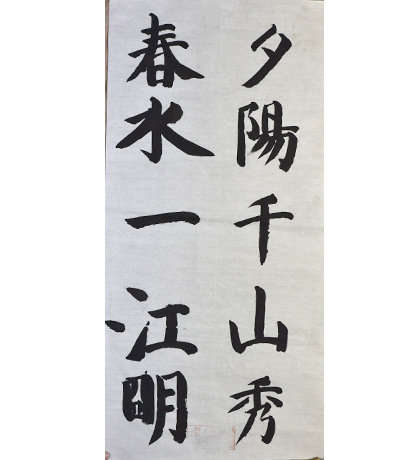 夕陽千山秀
春水一江明